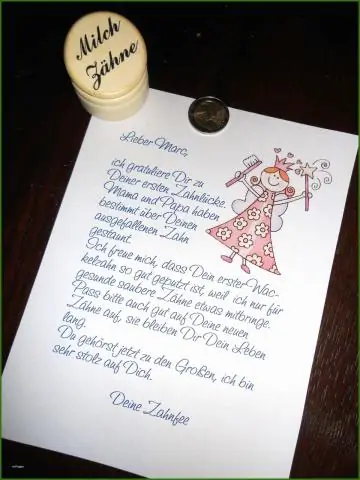 Milch
Zähne
Lieber Marc,
ich gratuliere Dir zu
Deiner ersten Zahnlücke.
Mama und Papa haben
bestimmt über Deinen
ausgefallenen Zahn
gestaunt.
Ich freue mich, dass Dein erster Wac-
kelzahn so gut geputzt ist, weil ich nur für
gesunde saubere Zähne etwas mitbringe.
Pass bitte auch gut auf Deine neuen
Zähne auf, sie bleiben Dir Dein Leben
lang.
Du gehörst jetzt zu den Großen, ich bin
sehr stolz auf Dich.
Deine Zahnfee